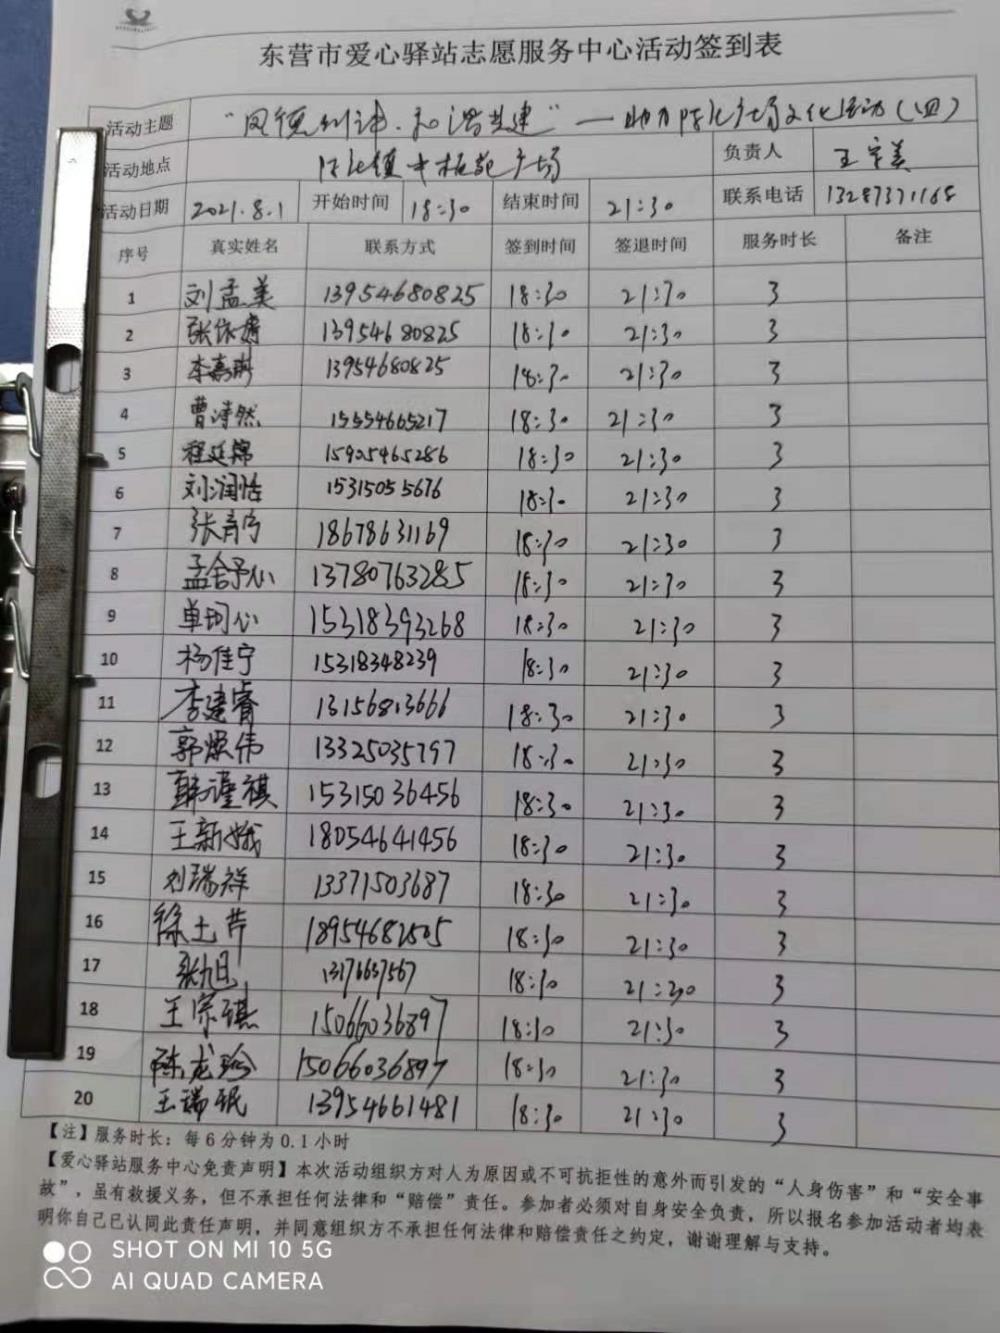 东营市爱心驿站志愿服务中心活动签到表
活动主题 助力 广场文化活动（四）
活动地点 广场 负责人 王宗美
活动日期 2021.8.1 开始时间 18:30 结束时间 21:30 联系电话 13287371168
序号 真实姓名 联系方式 签到时间 签退时间 服务时长 备注
1 刘孟美 13954680825 18:30 21:30 3
2 13954680825 18:30 21:30 3
3 李嘉 13954680825 18:30 21:30 3
4 曹 然 15554665217 18:30 21:30 3
5 程廷锦 15905465286 18:30 21:30 3
6 刘润恬 15315055676 18:30 21:30 3
7 张育宁 18678631169 18:30 21:30 3
8 孟舍予心 13780763285 18:30 21:30 3
9 单珂心 15318393268 18:30 21:30 3
10 杨佳宁 15318348239 18:30 21:30 3
11 李建睿 13156813666 18:30 21:30 3
12 郭焕伟 13325035797 18:30 21:30 3
13 韩瑾祺 15315036456 18:30 21:30 3
14 王新娥 18054641456 18:30 21:30 3
15 刘瑞祥 13371503687 18:30 21:30 3
16 徐士芹 18:30 21:30 3
17 张旭 13176637567 18:30 21:30 3
18 王宗琪 15066036897 18:30 21:30 3
19 陈龙玲 15066036897 18:30 21:30 3
20 王瑞珉 13954661481 18:30 21:30 3
【注】服务时长：每6分钟为0.1小时
【爱心驿站服务中心免责声明】本次活动组织方对人为原因或不可抗拒性的意外而引发的“人身伤害”和“安全事
故”，虽有救援义务，但不承担任何法律和“赔偿”责任。参加者必须对自身安全负责，所以报名参加活动者均表
明你自己已认同此责任声明，并同意组织方不承担任何法律和赔偿责任之约定，谢谢理解与支持。
SHOT ON MI 10 5G
AI QUAD CAMERA